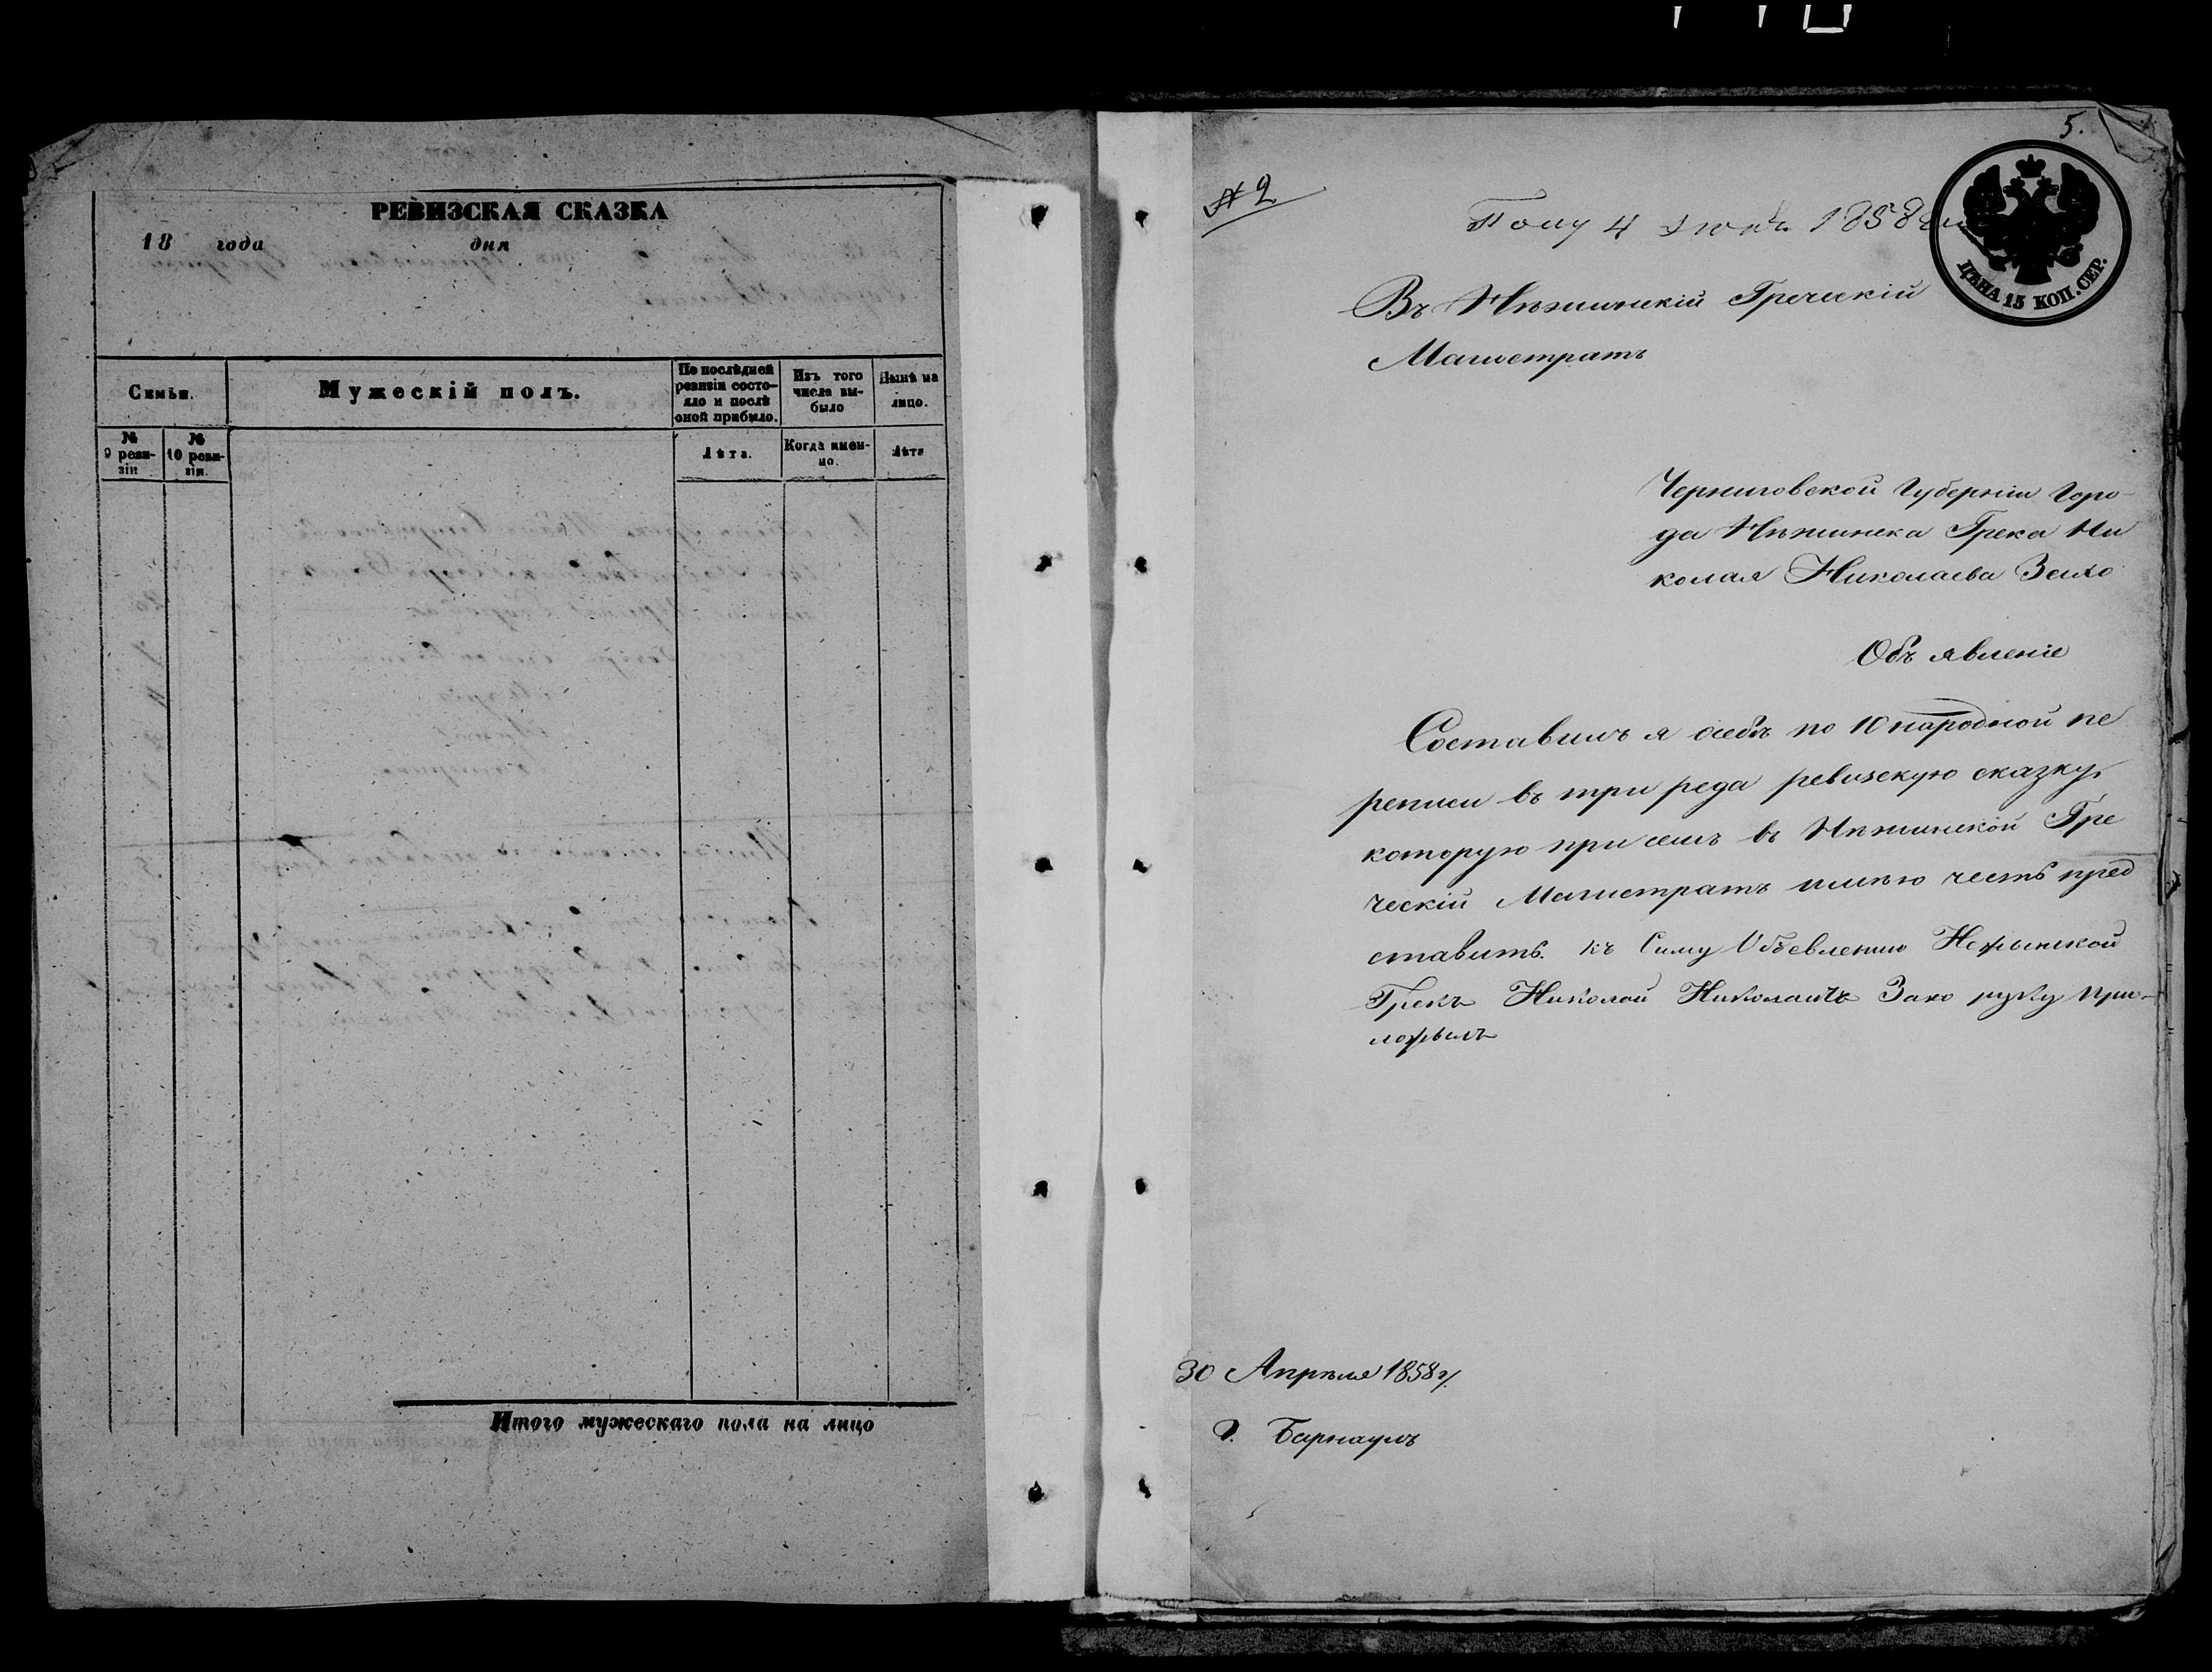 РЕВИЗСКАЯ СКАЗКА
18 года дня
Семьи.
Мужескій полъ.
По послѣдней ревизіи состо-яло и послѣ оной прибыло.
Изъ того числа вы-было
Нынѣ на лицо.
№ 9 реви-зіи
№ 10 реви-зіи.
Лѣта.
Когда имен-но.
Лѣта
Итого мужескаго пола на лицо
5.
№ 2
Полу 4 Июня 1858
ЦѢНА 15 КОП. СЕР.
Въ Нѣжинскій Греческій
Магистратъ
Черниговской Губерніи Горо-
да Нѣжинска Грека Ни
колая Николаева
Объ явленіе
Составилъ я себѣ по 10 народной пе
реписи въ три реда ревизскую сказку,
которую при семъ въ Нѣжинской Гре
ческій Магистратъ имѣю честь пред
ставить. къ Симу Обьевлению Нежинской
Грекъ Николай Николаивъ Захо руку при-
ложылъ
30 Апрѣля 1858 г.
Г. Барнаулъ